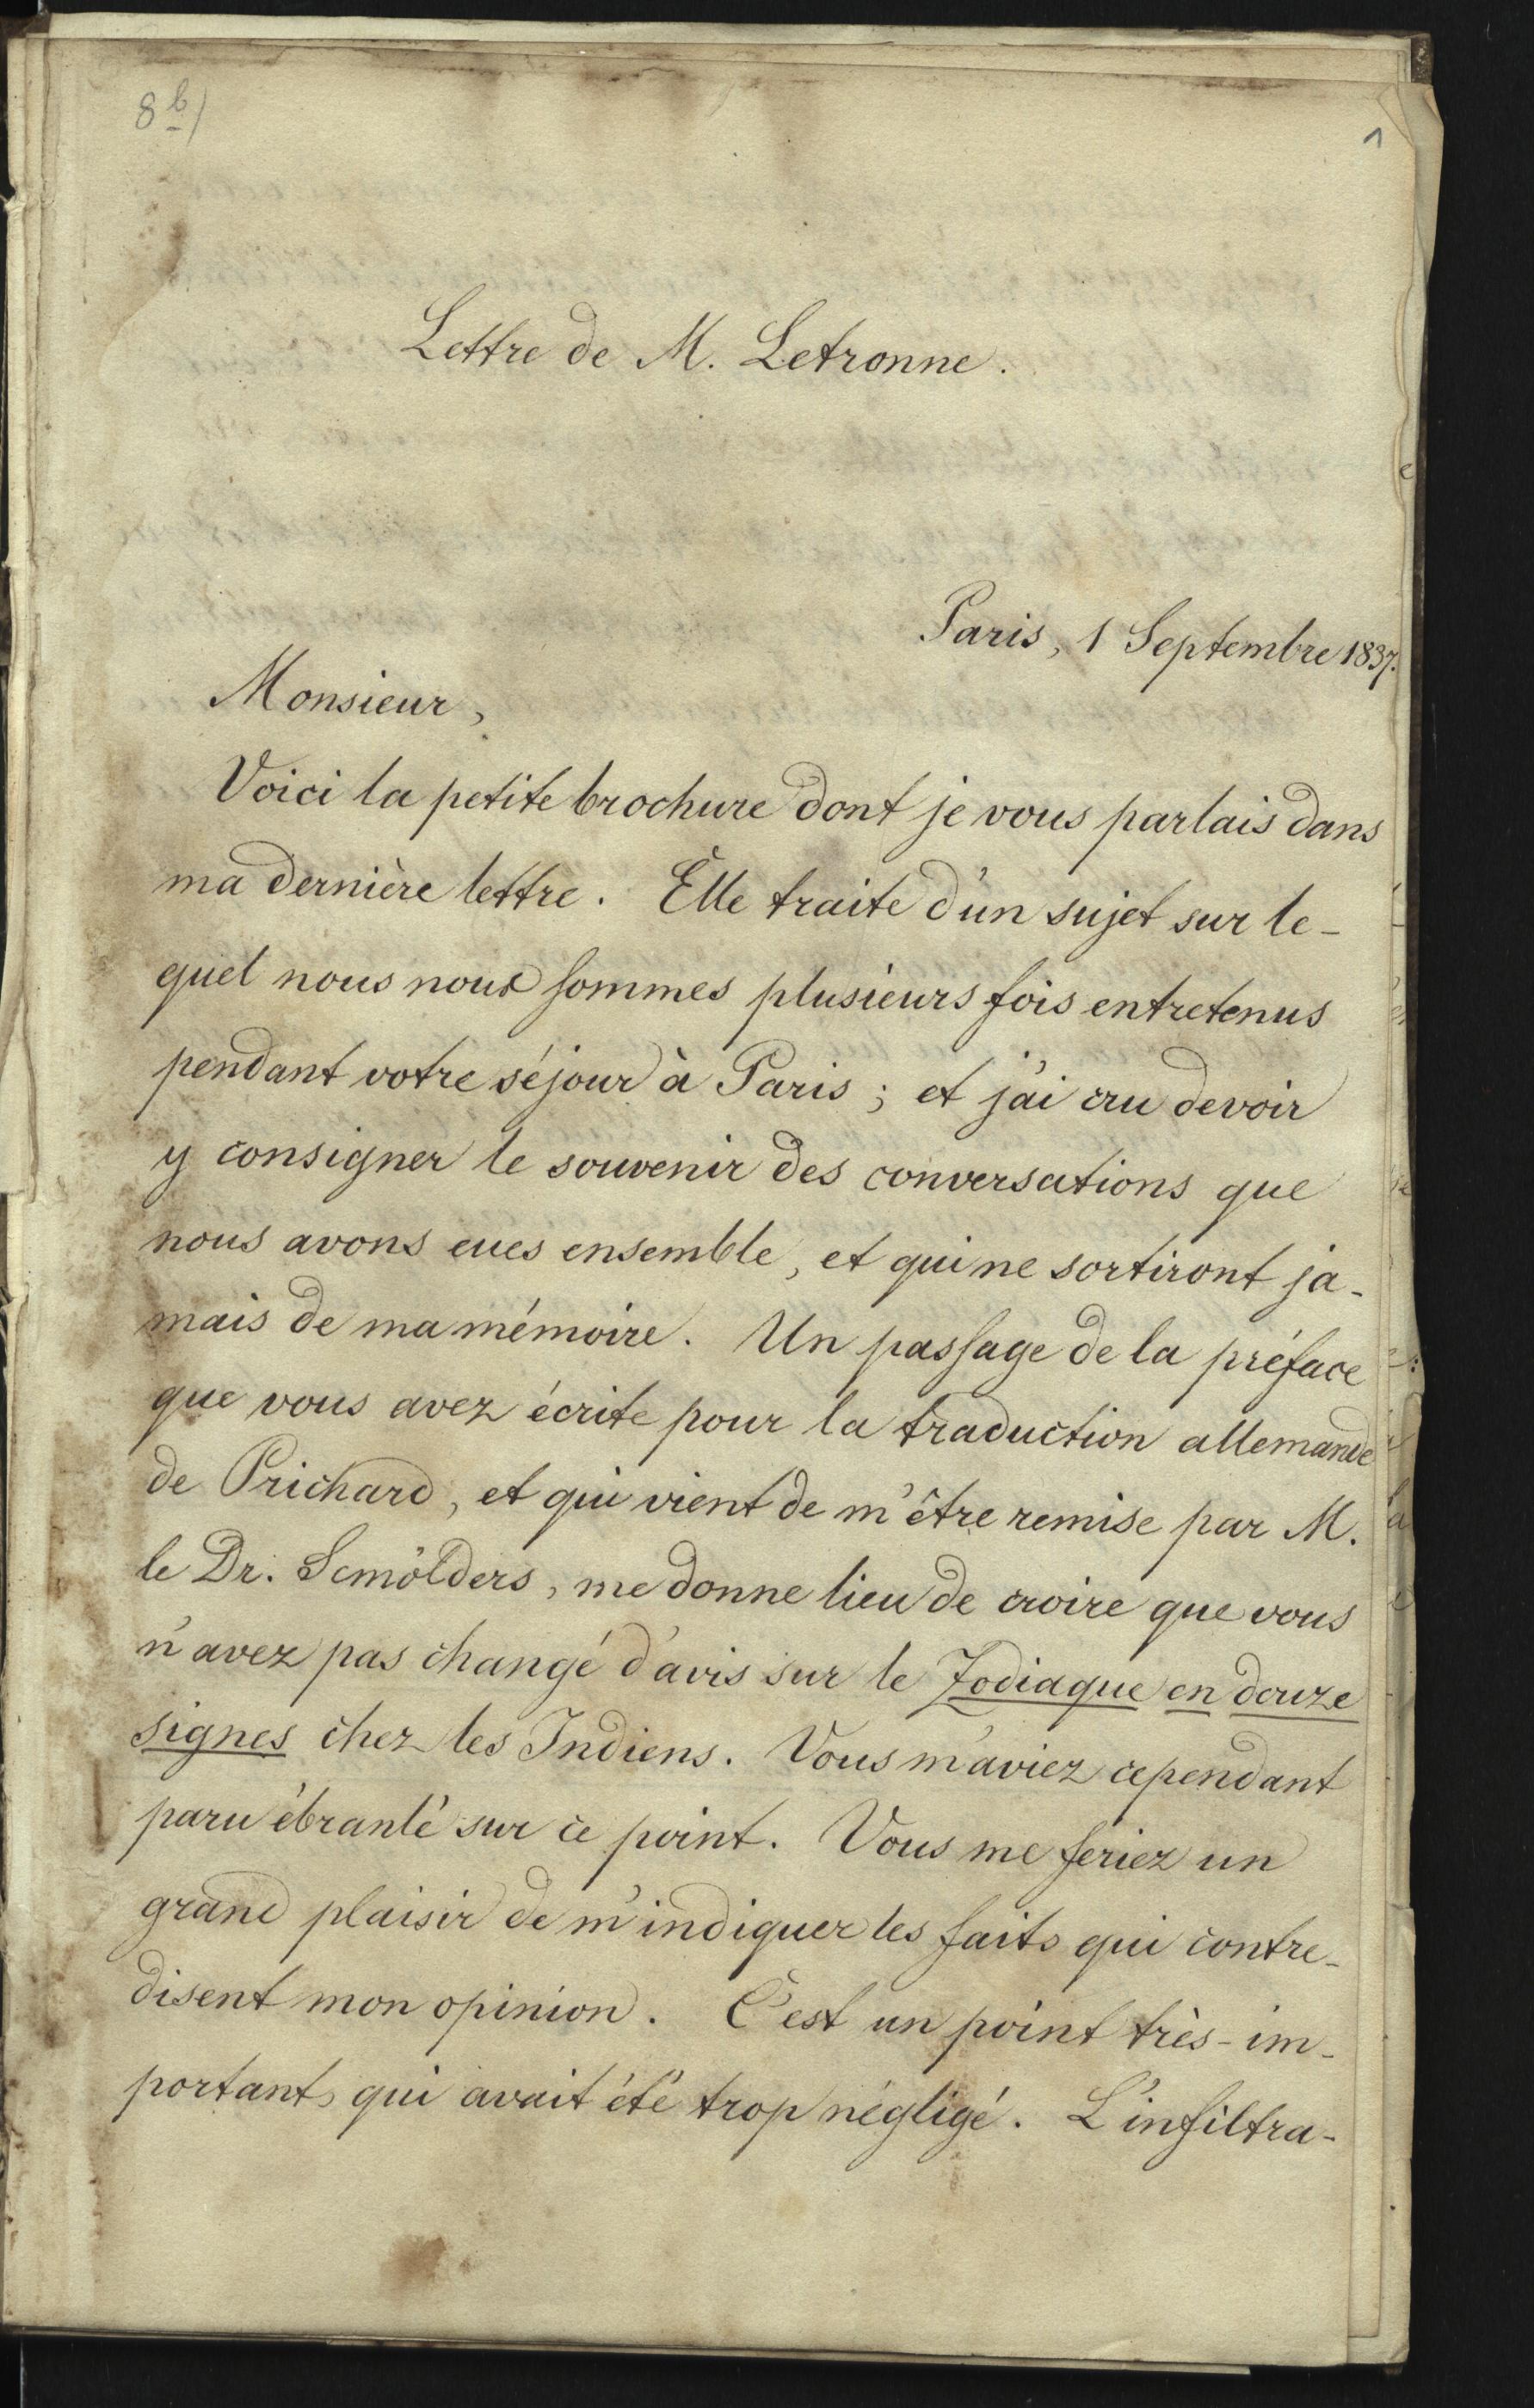 8b)
1
Lettre de M. Letronne.
Paris, 1 Septembre 1837.
Monsieur,
Voici la petite brochure dont je vous parlais dans
ma dernière lettre. Elle traite d'un sujet sur le-
quel nous nous sommes plusieurs fois entretenus
pendant votre séjour à Paris; et j'ai cru devoir
y consigner le souvenir des conversations que
nous avons eues ensemble, et qui ne sortiront ja-
mais de ma mémoire. Un passage de la préface
que vous avez écrite pour la traduction allemande
de Prichard, et qui vient de m'être remise par M.
le Dr. Scmölders, me donne lieu de croire que vous
n'avez pas changé d'avis sur le Zodiaque en douze
signes chez les Indiens. Vous m'aviez cependant
paru ébranlé sur ce point. Vous me feriez un
grand plaisir de m'indiquer les faits qui contre-
disent mon opinion. C'est un point très-im-
portant, qui avait été trop négligé. L'infiltra-